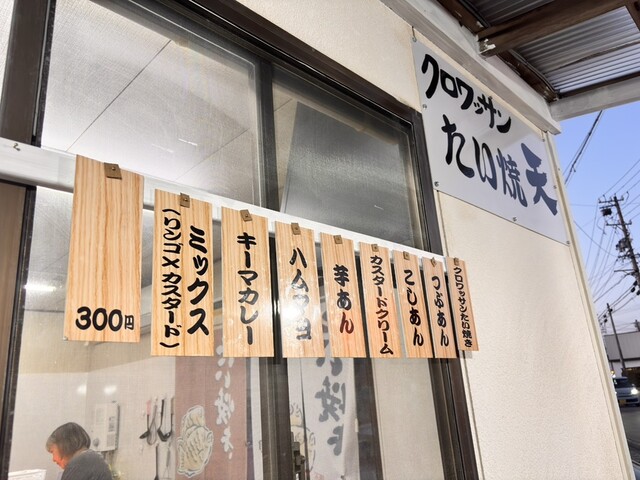 クロワッサン
たい焼 天
クロワッサンたい焼き
つぶあん
こしあん
カスタードクリーム
芋あん
ハムマヨ
キーマカレー
ミックス
(リンゴ×カスタード)
300円
たい焼き